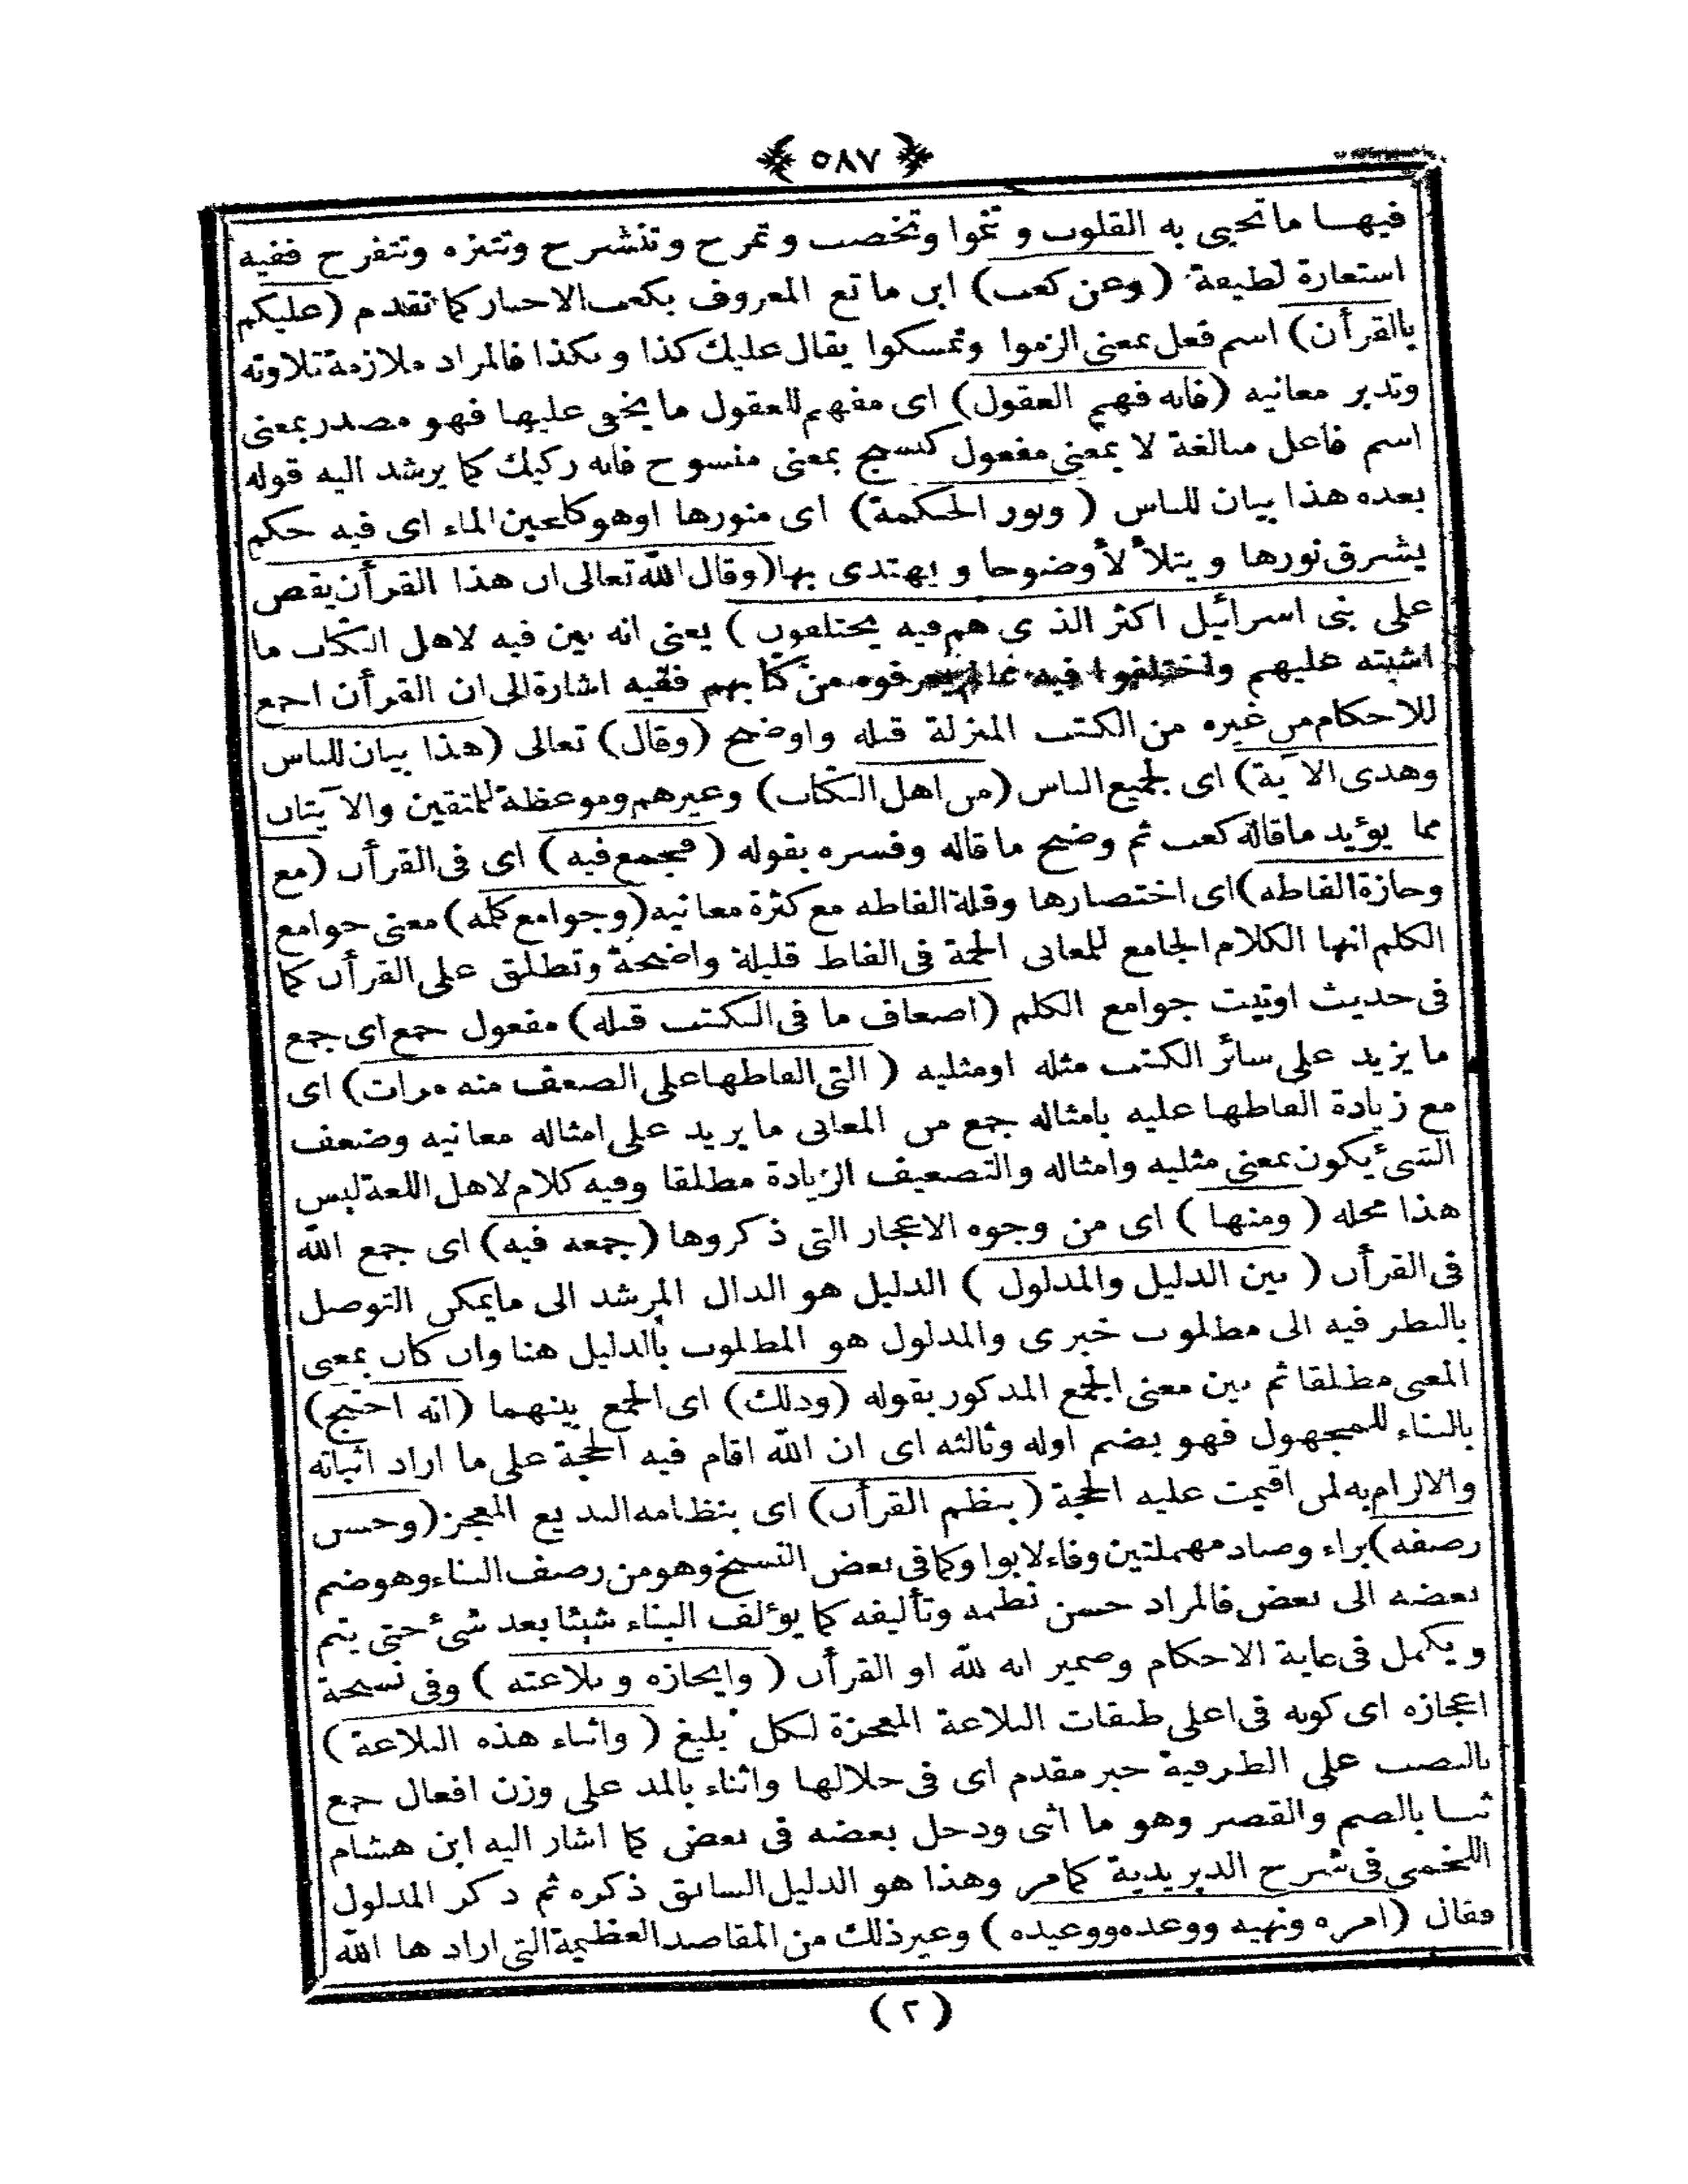 ﴿ ٥٨٧ ﴾
فيها ما تحيى به القلوب و تنموا وتخصب و تمرح وتنشرح وتتنزه وتتفرح ففيه
استعارة لطيفة (وعن كعب) ابن ماتع المعروف بكعب الاحبار كما تقدم (عليكم
بالقرأن) اسم فعل بمعنى الزموا وتمسكوا يقال عليك كذا وبكذا فالمراد ملازمة تلاوته
وتدبر معانيه (فانه فهم العقول) اى مفهم للعقول ما يخفى عليها فهو مصدر بمعنى
اسم فاعل مبالغة لا بمعنى مفعول كنسج بمعنى منسوج فانه ركيك كما يرشد اليه قوله
بعده هذا بيان للناس (ونور الحكمة) اى منورها اوهو كلجين الماء اى فيه حكم
يشرق نورها و يتلأ لأ وضوحا و يهتدى بها (وقال الله تعالى ان هذا القرأن يقص
على بنى اسرائيل اكثر الذى هم فيه يختلفون) يعنى انه بين فيه لاهل الكتاب ما
اشتبه عليهم واختلفوا فيه مما لم يعرفوه من كتابهم ففيه اشارة الى ان القرأن اجمع
للاحكام من غيره من الكتب المنزلة قبله واوضح (وقال) تعالى (هذا بيان للناس
وهدى الاۤية) اى لجميع الناس (من اهل الكتاب) وغيرهم وموعظة للمتقين والاۤيتان
مما يؤيد ما قاله كعب ثم وضح ما قاله وفسره بقوله (فجمع فيه) اى فى القرأن (مع
وجازة الفاظه) اى اختصارها وقلة الفاظه مع كثرة معانيه (وجوامع كلمه) معنى جوامع
الكلم انها الكلام الجامع للمعانى الجمة فى الفاظ قليلة واضحة وتطلق على القرأن كما
فى حديث اوتيت جوامع الكلم (اضعاف ما فى الكتب قبله) مفعول جمع اى جمع
ما يزيد على سائر الكتب مثله اومثليه (التى الفاظها على الضعف منه مرات) اى
مع زيادة الفاظها عليه بامثاله جمع من المعانى ما يزيد على امثاله معانيه وضعف
الشىء يكون بمعنى مثليه وامثاله والتضعيف الزيادة مطلقا وفيه كلام لاهل اللغة ليس
هذا محله (ومنها) اى من وجوه الاعجاز التى ذكروها (جمعه فيه) اى جمع الله
فى القرأن (بين الدليل والمدلول) الدليل هو الدال المرشد الى ما يمكن التوصل
بالنظر فيه الى مطلوب خبرى والمدلول هو المطلوب بالدليل هنا وان كان بمعنى
المعنى مطلقا ثم بين معنى الجمع المذكور بقوله (وذلك) اى الجمع بينهما (انه احتج)
بالبناء للمجهول فهو بضم اوله وثالثه اى ان الله اقام فيه الحجة على ما اراد اثباته
والالزام به لمن اقيمت عليه الحجة (بنظم القرأن) اى بنظامه البديع المعجز (وحسن
رصفه) براء وصاد مهملتين وفاء لابواو كما فى بعض النسخ وهو من رصف البناء وهو ضم
بعضه الى بعض فالمراد حسن نظمه وتأليفه كما يؤلف البناء شيئا بعد شىء حتى يتم
ويكمل فى غاية الاحكام وضمير انه لله او القرأن (وايجازه و بلاغته) وفى نسخة
اعجازه اى كونه فى اعلى طبقات البلاغة المعجزة لكل بليغ (واثناء هذه البلاغة)
بالنصب على الظرفية خبر مقدم اى فى خلالها واثناء بالمد على وزن افعال جمع
ثنا بالضم والقصر وهو ما اثنى ودخل بعضه فى بعض كما اشار اليه ابن هشام
اللخمى فى شرح الدريدية كما مر وهذا هو الدليل السابق ذكره ثم ذكر المدلول
فقال (امره ونهيه ووعده ووعيده) وغير ذلك من المقاصد العظيمة التى ارادها الله
(٢)